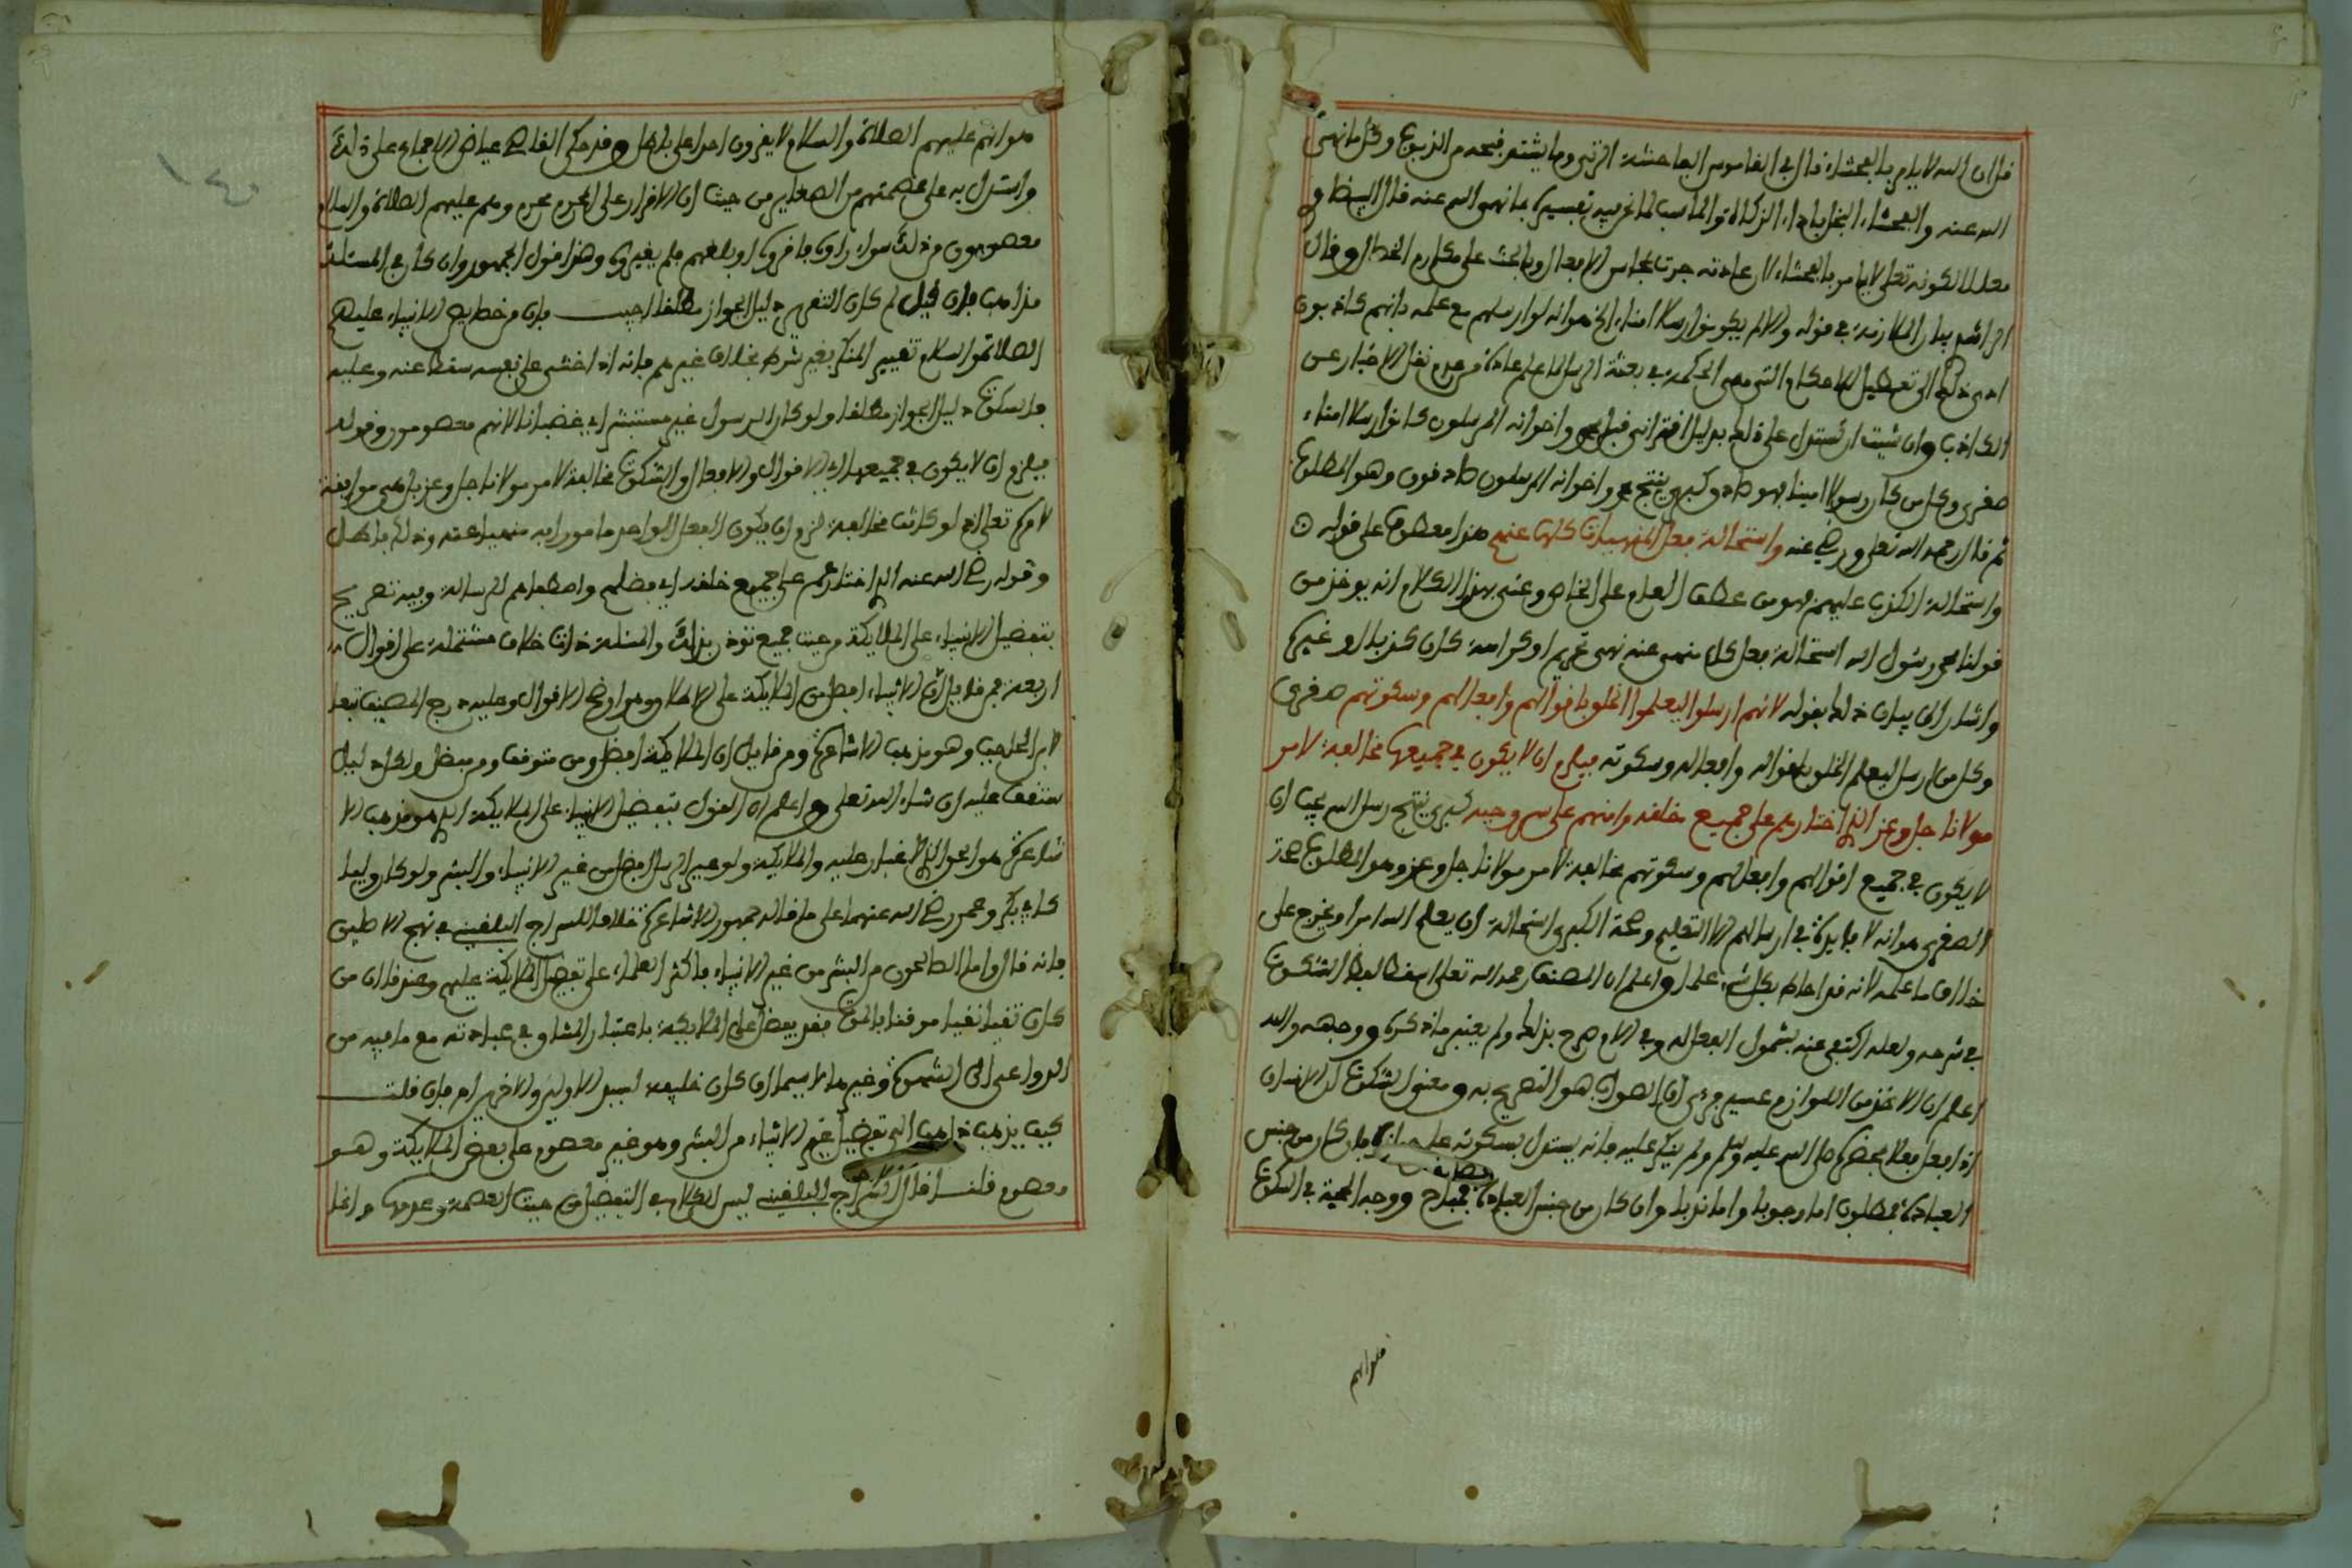 فإن الله لا يامر بالفحشاء قال في القاموس الفاحشة الزنى وما يشتد قبحه من الذنوب وكل ما نهى
الله عنه والفحشاء البخل باداء الزكاة والمناسب لما نحن فيه تفسيرها بما نهى الله عنه قال البيضاوي
معللا لكونه تعلى لا يامر بالفحشاء لان عادته جرت بمحاسن الافعال والحث على مكارم الخصال وقال
ادى ذلك الى تعطيل الاحكام التي هي الحكمة في بعثة الرسل
الكاذب وان شيت ان تستدل على ذلك بدليل اقتراني قلت محمد واخوانه المرسلون كانوا رسلا امناء
صغرى وكل من كان رسولا امينا فهو صادق كبرى ينتج محمد واخوانه المرسلون صادقون وهو المطلوب
ثم قال رحمه الله تعلى ورضي عنه واستحالة فعل المنهيات كلها عنهم هذا معطوف على قوله
واستحالة الكذب عليهم فهو من عطف العام على الخاص وعنى بهذا الكلام انه يوخذ من
قولنا محمد رسول الله استحالة فعل كل منهي عنه نهي تحريم او كراهة كان كذبا او غيره
واشار الى بيان ذلك بقوله لانهم ارسلوا ليعلموا الخلق باقوالهم وافعالهم وسكوتهم صغرى
وكل من ارسل ليعلم الخلق باقواله وافعاله وسكوته فيلزم ان لا يكون في جميعها مخالفة لامر
مولانا جل وعز الذي اختارهم على جميع خلقه وامنهم على سر وحيه كبرى ينتج رسل الله يجب ان
لا يكون في جميع اقوالهم وافعالهم وسكوتهم مخالفة لامر مولانا جل وعز وهو المطلوب
الصغرى هو انه لا فايدة في ارسالهم الا التعليم وصحة الكبرى استحالة ان يعلم الله امرا ويخرج على
خلاف ما علمه لانه قد احاط بكل شيء علما واعلم ان المصنف رحمه الله تعلى اسقط لفظ السكوت
في شرحه ولعله اكتفى عنه بشمول الفعل له وفي الام صرح بذلك ولم يعتبر ما ذكر ووجهه والله
اعلم ان الاخذ من اللوازم عسير فرءى ان الصواب هو التصريح به ومعنى السكوت ان الانسان
اذا فعل فعلا بمحضره صلى الله عليه وسلم ولم ينكر عليه فانه يستدل بسكوته على جوازه فان كان من جنس
العبادة فمطلوب اما وجوبا واما ندبا وان كان من جنس العبادة فمباح ووجه الحجة في السكوت
هو انهم
هو انهم عليهم الصلاة والسلام لا يقرون احدا على باطل وقد حكى القاضي عياض الاجماع على ذلك
واستدل به على عصمتهم من الصغاير من حيث ان الاقرار على المحرم محرم وهم عليهم الصلاة والسلام
معصومون من ذلك سواء راوه فاقروه او بلغهم فلم يغيروه وهذا قول الجمهور وان كان في المسئلة
مذاهب فان قيل لم كان التقرير دليل الجواز مطلقا اجيب بان من خصايص الانبياء عليهم
الصلاة والسلام تغيير المنكر بغير شرط بخلاف غيرهم فانه اذا خشي على نفسه سقط عنه وعليه
فالسكوت دليل الجواز مطلقا ولو كان الرسول غير مستبشر اي غضبانا لانهم معصومون وقوله
فيلزم ان لا يكون في جميعها اي الاقوال والافعال والسكوت مخالفة لامر مولانا جل وعز بل هي موافقة
لامره تعلى اذ لو كانت مخالفة لزم ان يكون الفعل الواحد مامورا به منهيا عنه وذلك باطل
وقوله رضي الله عنه الذي اختارهم على جميع خلقه اي فضلهم واصطفاهم للرسالة وفيه تصريح
بتفضيل الانبياء على الملايكة من حيث جميع توذن بذلك والمسئلة ذات خلاف مشتملة على اقوال
اربعة فمن قايل ان الانبياء افضل من الملايكة على الاطلاق وهو اوضح الاقوال وعليه درج المصنف تبعا
لابن الحاجب وهو مذهب الاشاعرة ومن قايل ان الملايكة افضل ومن متوقف ومن مفصل ولكل دليل
ستقف عليه ان شاء الله تعلى واعلم ان القول بتفضيل الانبياء على الملايكة الذي هو مذهب الا
شاعرة هو الحق الذي لا غبار عليه والملايكة ولو غير الرسل افضل من غير الانبياء والبشر ولو كان وليا
كابي بكر وعمر رضي الله عنهما على ما قاله جمهور الاشاعرة خلافا للسراج البلقيني في منهج الاصلين
فانه قال واما الصالحون من البشر من غير الانبياء فاكثر العلماء على تفضيل الملايكة عليهم وعندنا ان من
كان تقيا نقيا موقنا بالموت فقد يفضل على الملايكة باعتبار المشاق في عبادته مع ما فيه من
الدواعي الى الشهوة وغيرها لا سيما ان كان خليفة لسيد الاولين والاخرين اه فان قلت
كيف يذهب ذاهب الى تفضيل غير الانبياء من البشر وهو غير معصوم على بعض الملايكة وهو
معصوم قلت قال السراج البلقيني ليس الكلام في التفضيل من حيث العصمة وعدمها وانما